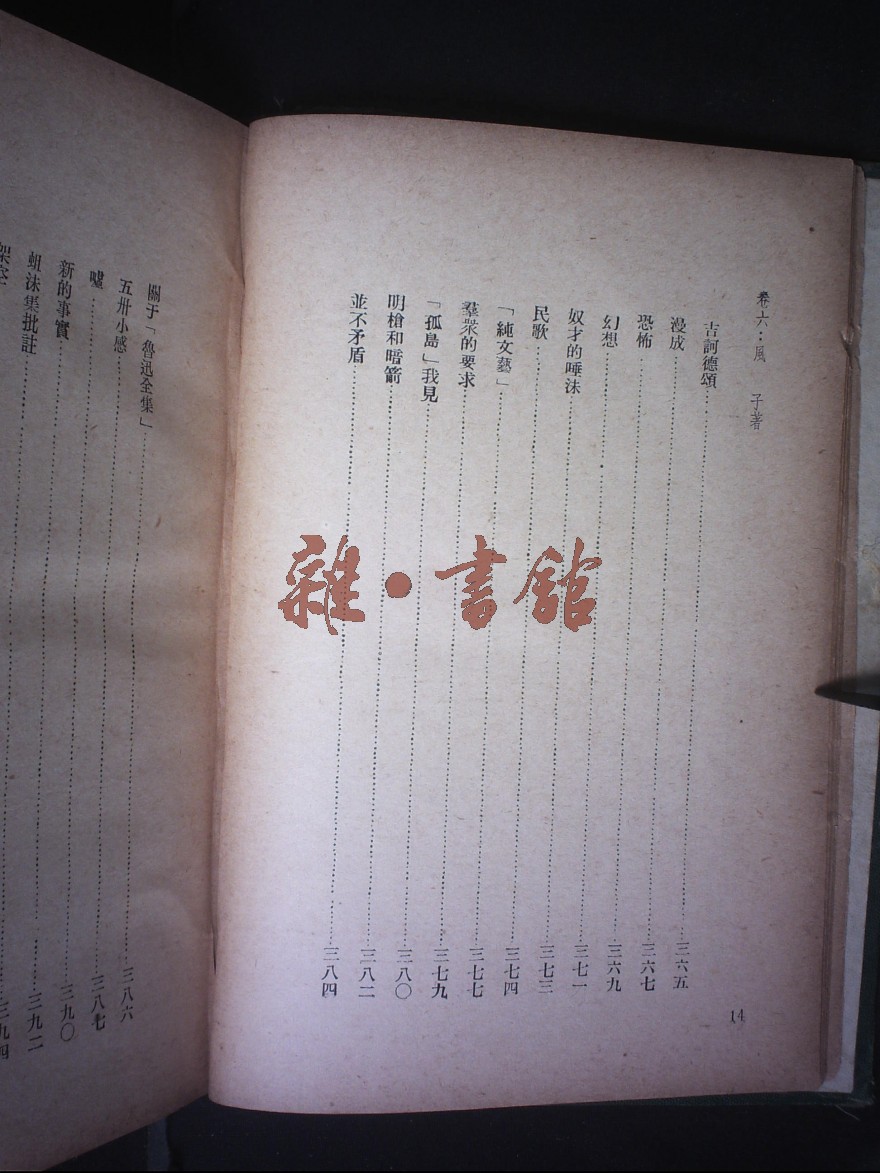 卷六：風　子著
吉訶德頌……三六五
漫成……三六七
恐怖……三六九
幻想……三七一
奴才的唾沫……三七三
民歌……三七四
「純文藝」……三七七
羣衆的要求……三七九
「孤島」我見……三八〇
明槍和暗箭……三八二
並不矛盾……三八四
14
關于「魯迅全集」……三八六
五卅小感……三八七
噓……三九〇
新的事實……三九二
蛆沫集批註……三九四
架空
雜·書館